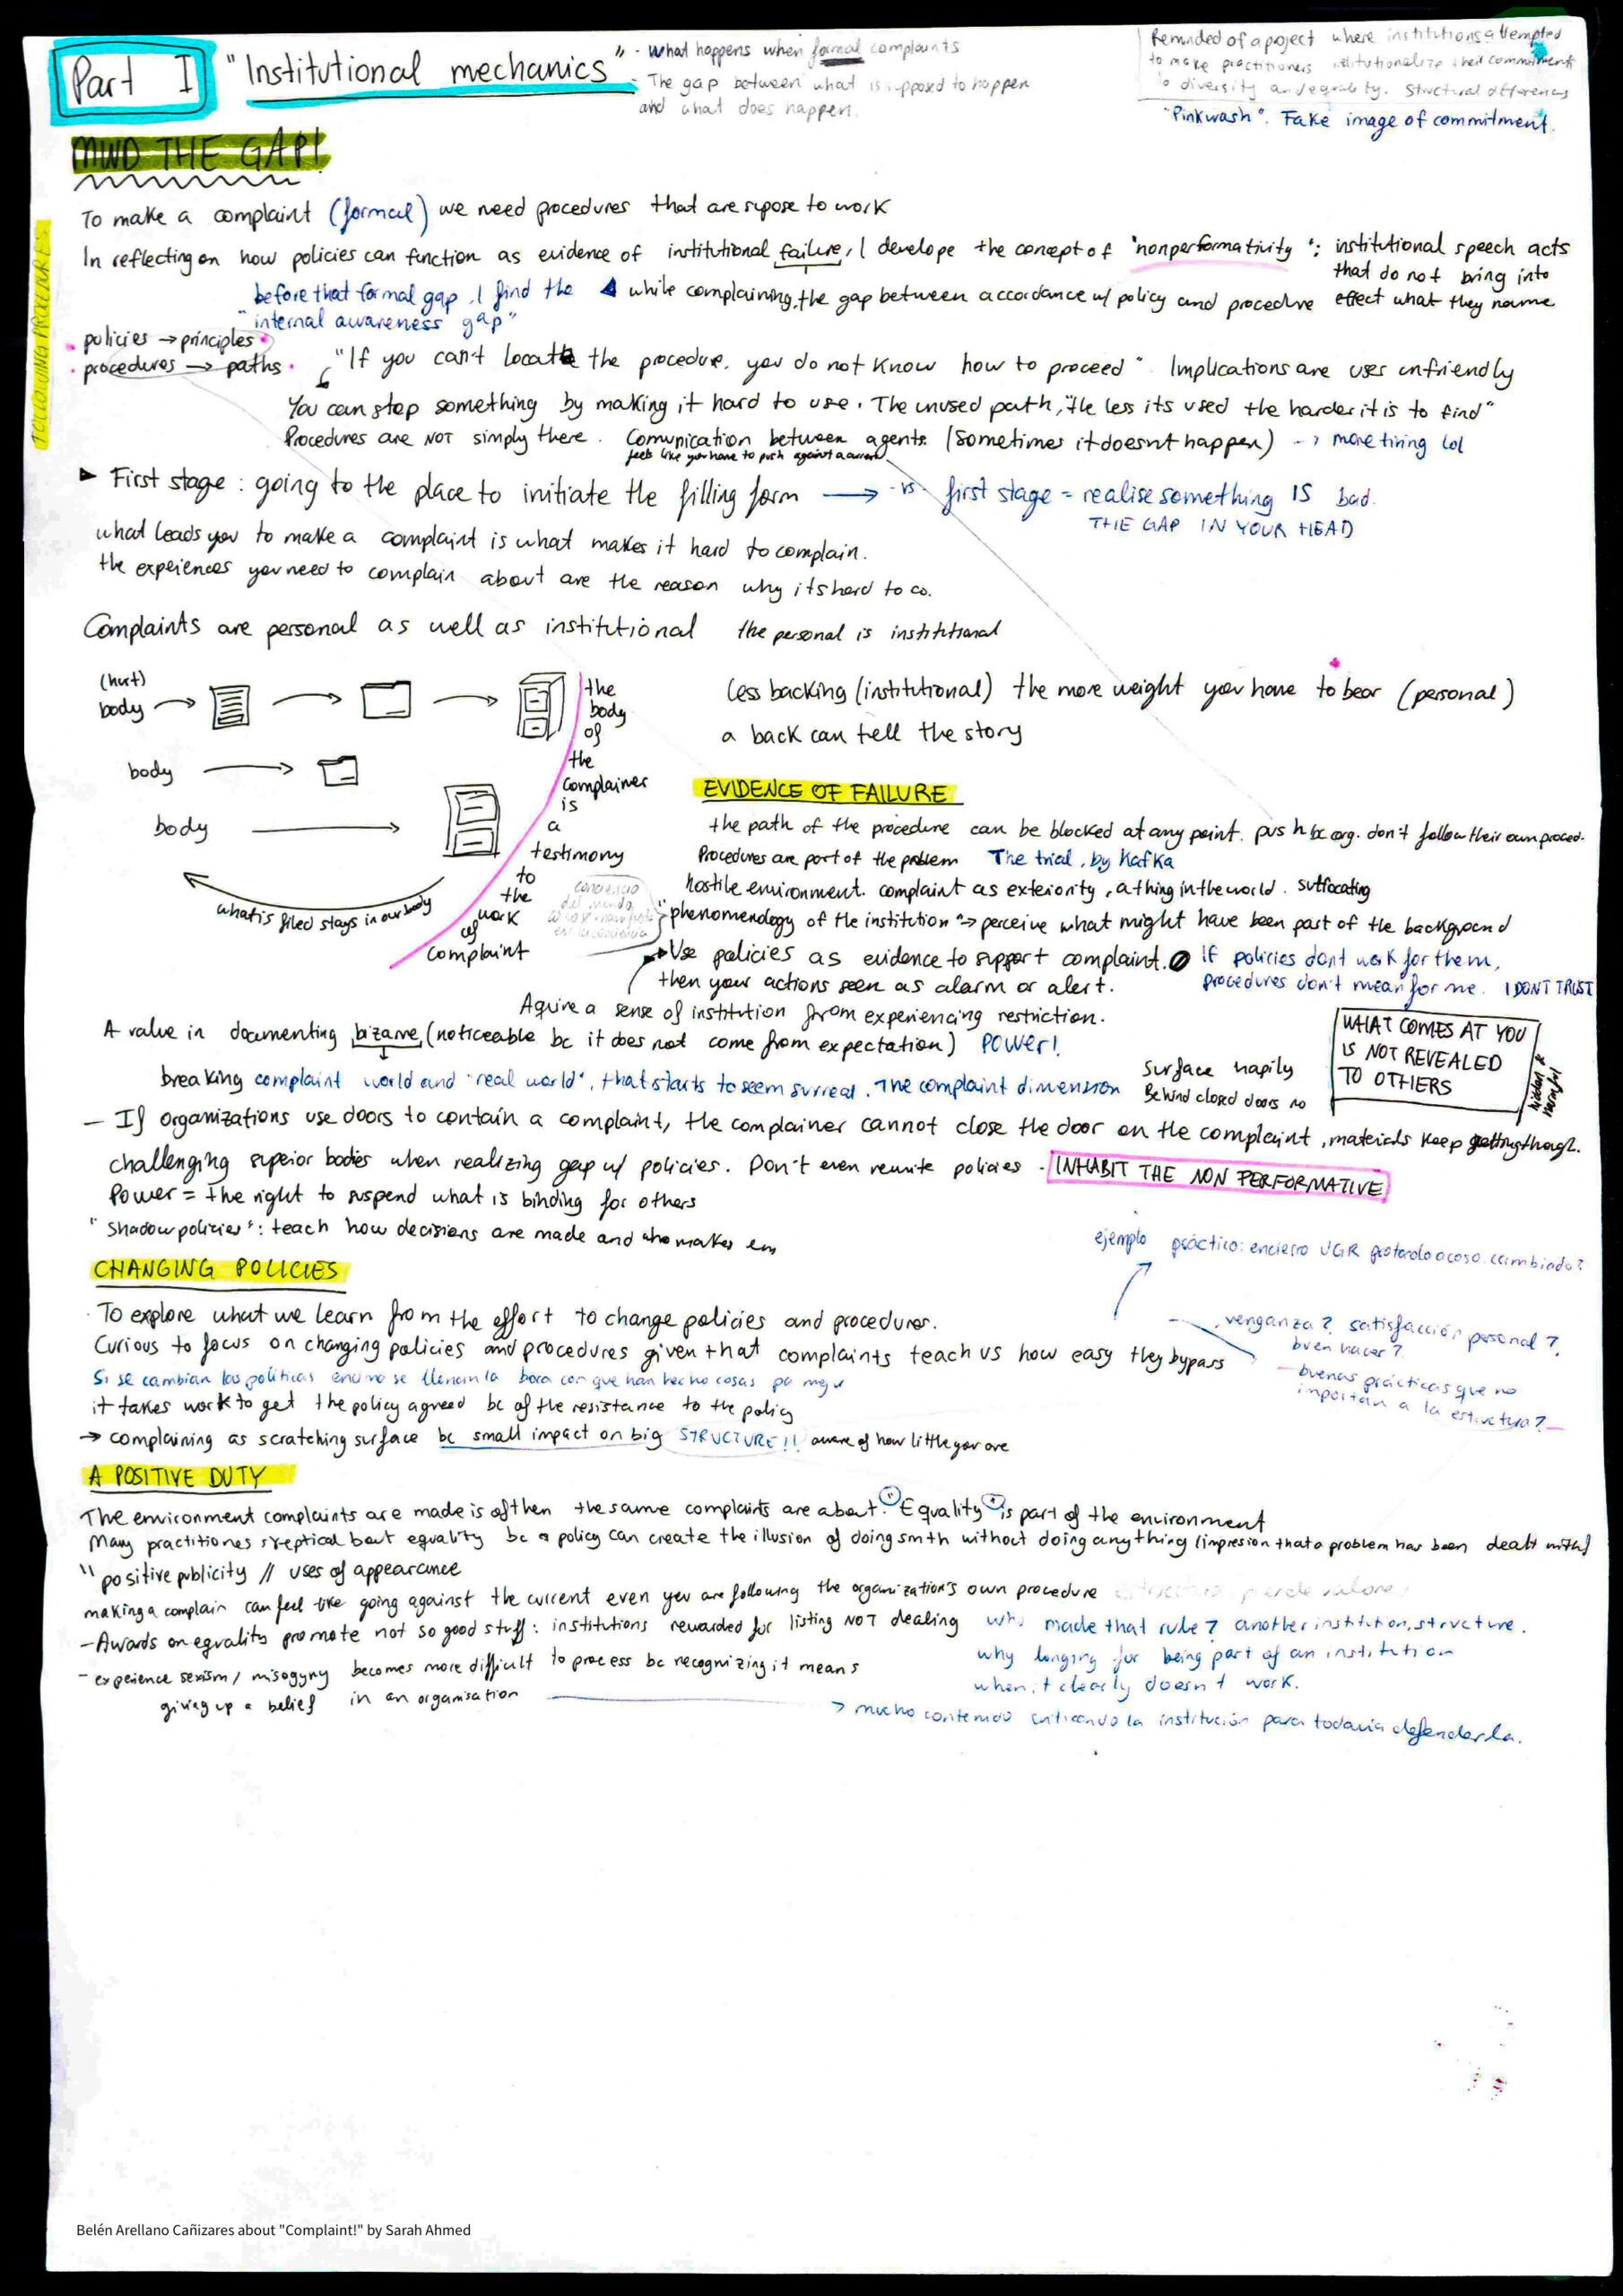 Part I
"Institutional mechanics"
- What happens when formal complaints
- The gap between what is supposed to happen
and what does happen.
Reminded of a project where institutions attempted
to make practitioners institutionalize their commitment
to diversity and equality. Structural differences
"Pinkwash". Fake image of commitment.
MIND THE GAP!
FOLLOWING PROCEDURES
To make a complaint (formal) we need procedures that are supose to work
In reflecting on how policies can function as evidence of institutional failure, I develope the concept of "nonperformativity": institutional speech acts
that do not bring into
effect what they name
before that formal gap, I find the
"internal awareness gap"
while complaining, the gap between accordance w/ policy and procedure
· policies → principles ·
· procedures → paths ·
"If you can't locate the procedure, you do not know how to proceed" Implications are user unfriendly
You can stop something by making it hard to use. The unused path, "the less its used the harder it is to find"
Procedures are NOT simply there. Comunication between agents (sometimes it doesnt happen) → more tiring lol
feels like you have to push against a current
► First stage: going to the place to initiate the filling form → -vs- first stage = realise something IS bad.
THE GAP IN YOUR HEAD
what leads you to make a complaint is what makes it hard to complain.
the experiences you need to complain about are the reason why its hard to co.
Complaints are personal as well as institutional the personal is institutional
(hurt)
body
body
body
what's filed stays in our body
the
body
of
the
complainer
is
a
testimony
to
the
work
of
complaint
less backing (institutional) the more weight you have to bear (personal)
a back can tell the story
EVIDENCE OF FAILURE
the path of the procedure can be blocked at any point. push bc org. don't follow their own proced.
Procedures are part of the problem The trial, by Kafka
hostile environment. complaint as exteriority, a thing in the world. suffocating
"phenomenology of the institution" → perceive what might have been part of the background
conciencia
del mundo
en la conciencia
Use policies as evidence to support complaint. If policies dont work for them,
then your actions seen as alarm or alert. procedures don't mean for me. I DONT TRUST
Aquire a sense of institution from experiencing restriction.
A value in documenting bizarre (noticeable bc it does not come from expectation) POWER!
breaking complaint world and "real world", that starts to seem surreal. The complaint dimension
Surface hapily
Behind closed doors no
WHAT COMES AT YOU
IS NOT REVEALED
TO OTHERS
hidden &
harmful
– If organizations use doors to contain a complaint, the complainer cannot close the door on the complaint, materials keep getting though.
challenging superior bodies when realizing gap w/ policies. Don't even rewrite policies. INHABIT THE NON PERFORMATIVE
Power = the right to suspend what is binding for others
"Shadow policies": teach how decisions are made and who makes em
ejemplo práctico: encierro UGR protocolo acoso. cambiado?
CHANGING POLICIES
· To explore what we learn from the effort to change policies and procedures.
Curious to focus on changing policies and procedures given that complaints teach us how easy they bypass
venganza? satisfacción personal?
buen hacer?
buenas prácticas que no
importan a la estructura?
Si se cambian las políticas encima se llenan la boca con que han hecho cosas pa mejor
it takes work to get the policy agreed bc of the resistance to the policy
→ complaining as scratching surface bc small impact on big STRUCTURE!! aware of how little you are
A POSITIVE DUTY
The environment complaints are made is ofthen the same complaints are about. "Equality" is part of the environment
Many practitiones skeptical bout equality bc a policy can create the illusion of doing smth without doing anything (impresion that a problem has been dealt with)
"positive publicity // uses of appearance
making a complain can feel like going against the current even you are following the organization's own procedure estructura pierde valores
– Awards on equality promote not so good stuff: institutions rewarded for listing NOT dealing
who made that rule? another institution, structure.
why longing for being part of an institution
when it clearly doesnt work.
– experience sexism / misogyny becomes more difficult to process bc recognizing it means
giving up a belief in an organisation
> mucho contenido criticando la institución para todavía defenderla.
Belén Arellano Cañizares about "Complaint!" by Sarah Ahmed